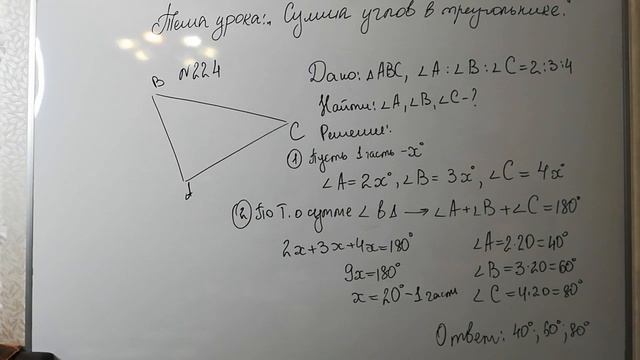 Тема урока: Сумма углов в треугольнике.
№224
B
C
Дано: △ABC, ∠A:∠B:∠C=2:3:4
Найти: ∠A, ∠B, ∠C-?
Решение:
① Пусть 1 часть - x°
∠A=2x°, ∠B=3x°, ∠C=4x°
② По Т. о сумме ∠ в △ → ∠A+∠B+∠C=180°
2x+3x+4x=180°
9x=180°
x=20° - 1 часть
∠A=2·20=40°
∠B=3·20=60°
∠C=4·20=80°
Ответ: 40°; 60°; 80°